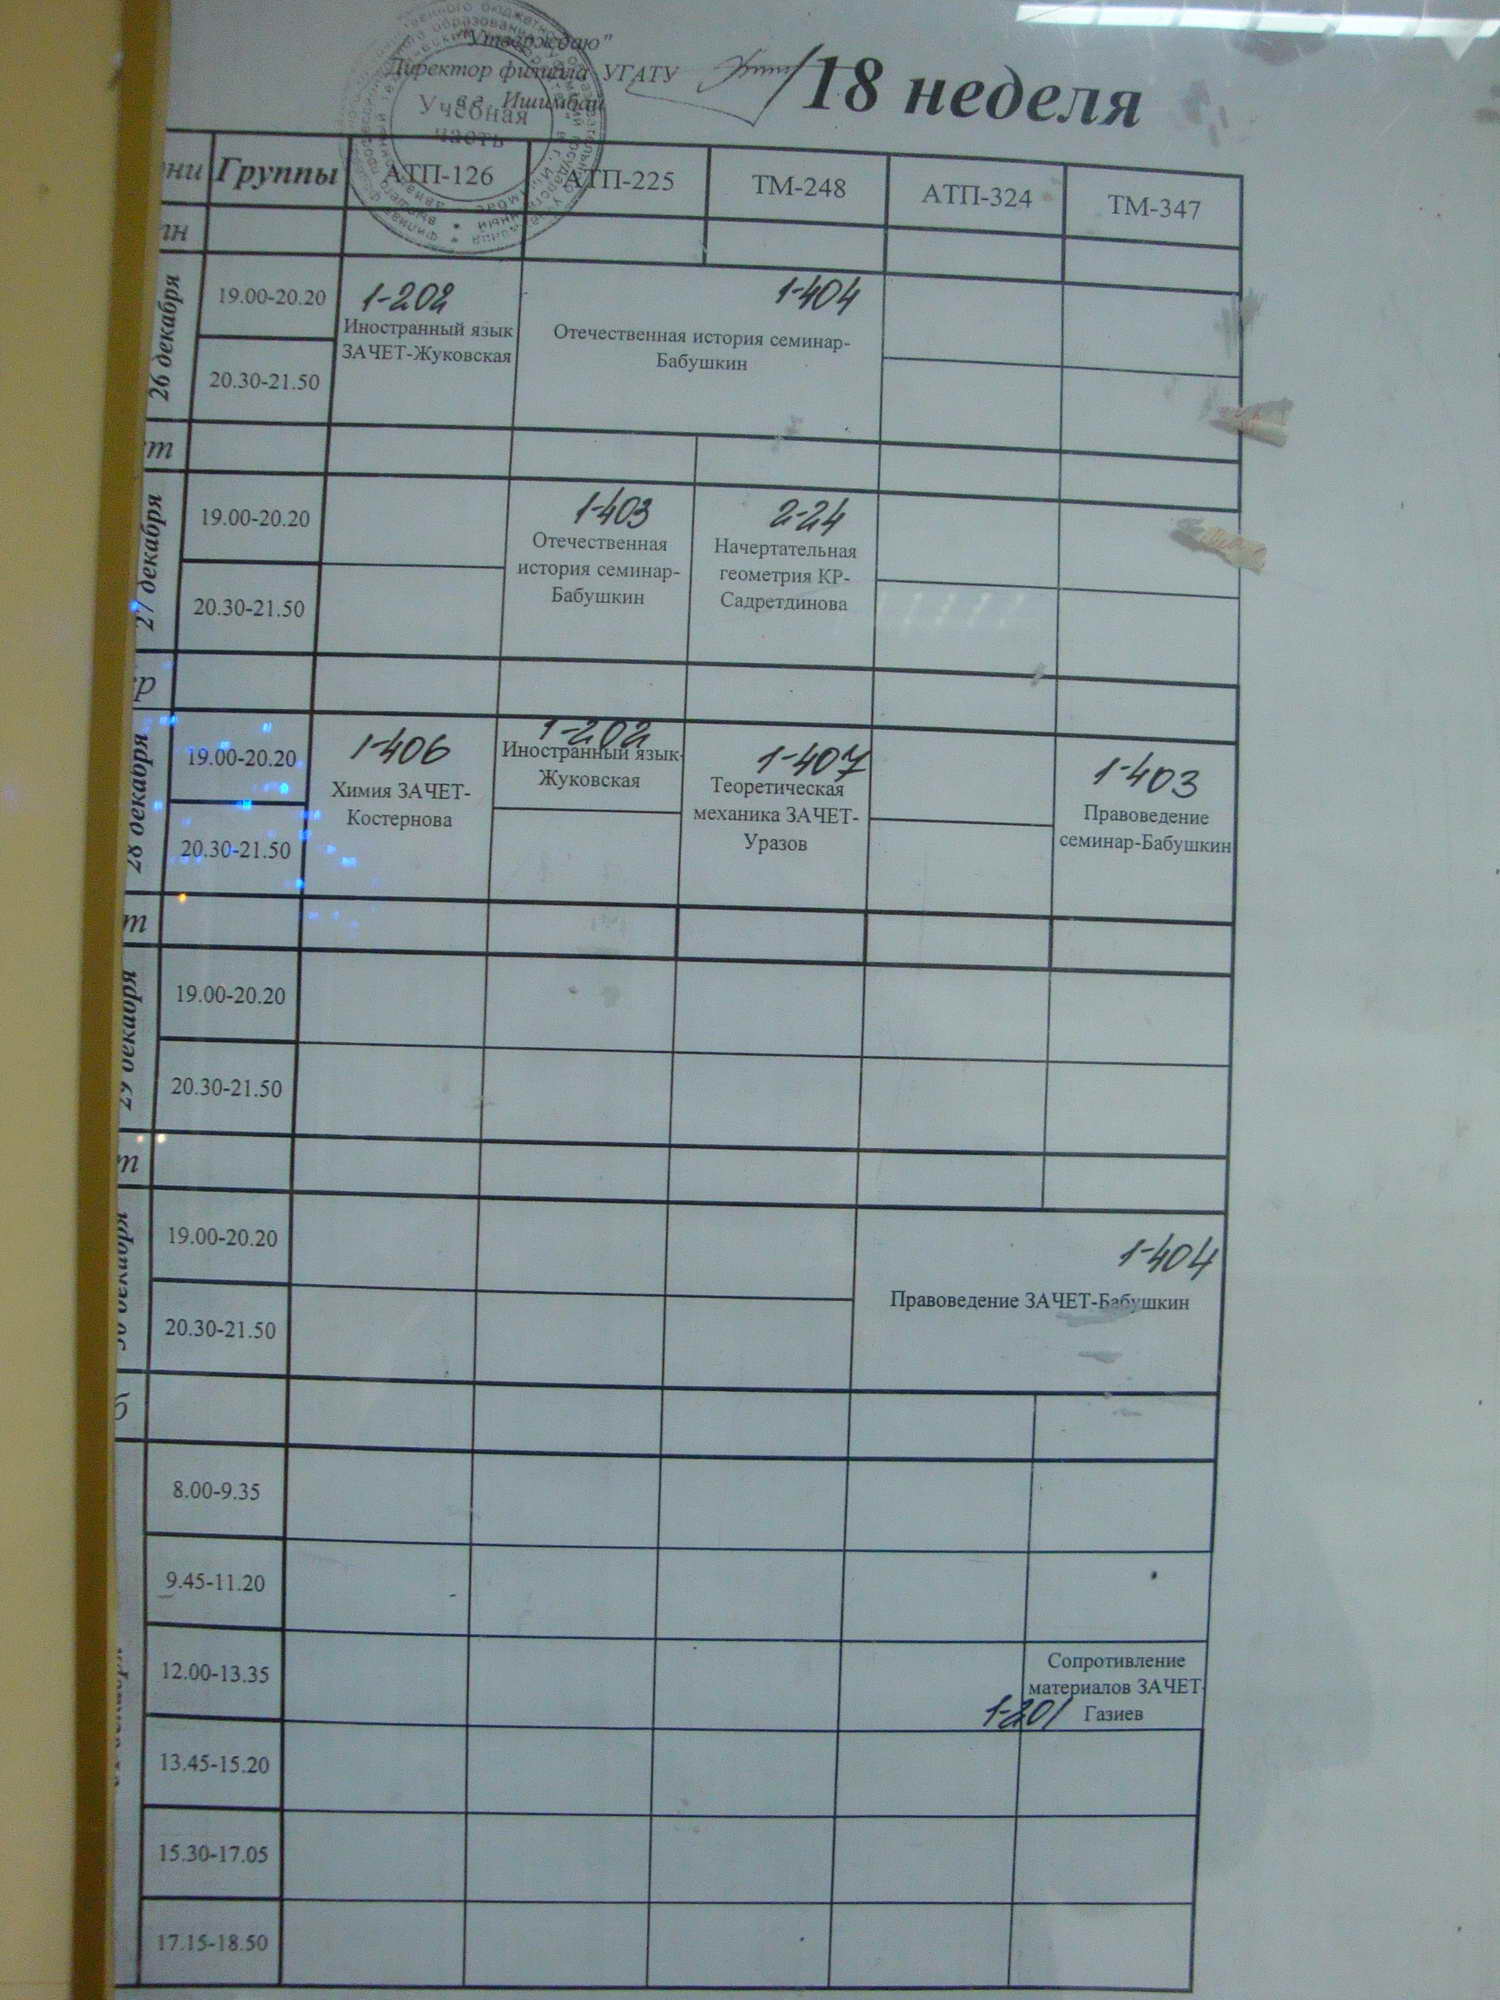 "Утверждаю"
Директор филиала УГАТУ
в г. Ишимбай
Учебная
часть
18 неделя
Группы АТП-126 АТП-225 ТМ-248 АТП-324 ТМ-347
26 декабря
19.00-20.20
20.30-21.50
1-202
Иностранный язык
ЗАЧЕТ-Жуковская
1-404
Отечественная история семинар-
Бабушкин
27 декабря
19.00-20.20
20.30-21.50
1-403
Отечественная
история семинар-
Бабушкин
2-24
Начертательная
геометрия КР-
Садретдинова
28 декабря
19.00-20.20
20.30-21.50
1-406
Химия ЗАЧЕТ-
Костернова
1-202
Иностранный язык-
Жуковская
1-407
Теоретическая
механика ЗАЧЕТ-
Уразов
1-403
Правоведение
семинар-Бабушкин
29 декабря
19.00-20.20
20.30-21.50
30 декабря
19.00-20.20
20.30-21.50
1-404
Правоведение ЗАЧЕТ-Бабушкин
8.00-9.35
9.45-11.20
12.00-13.35
Сопротивление
материалов ЗАЧЕТ-
Газиев
1-201
13.45-15.20
15.30-17.05
17.15-18.50